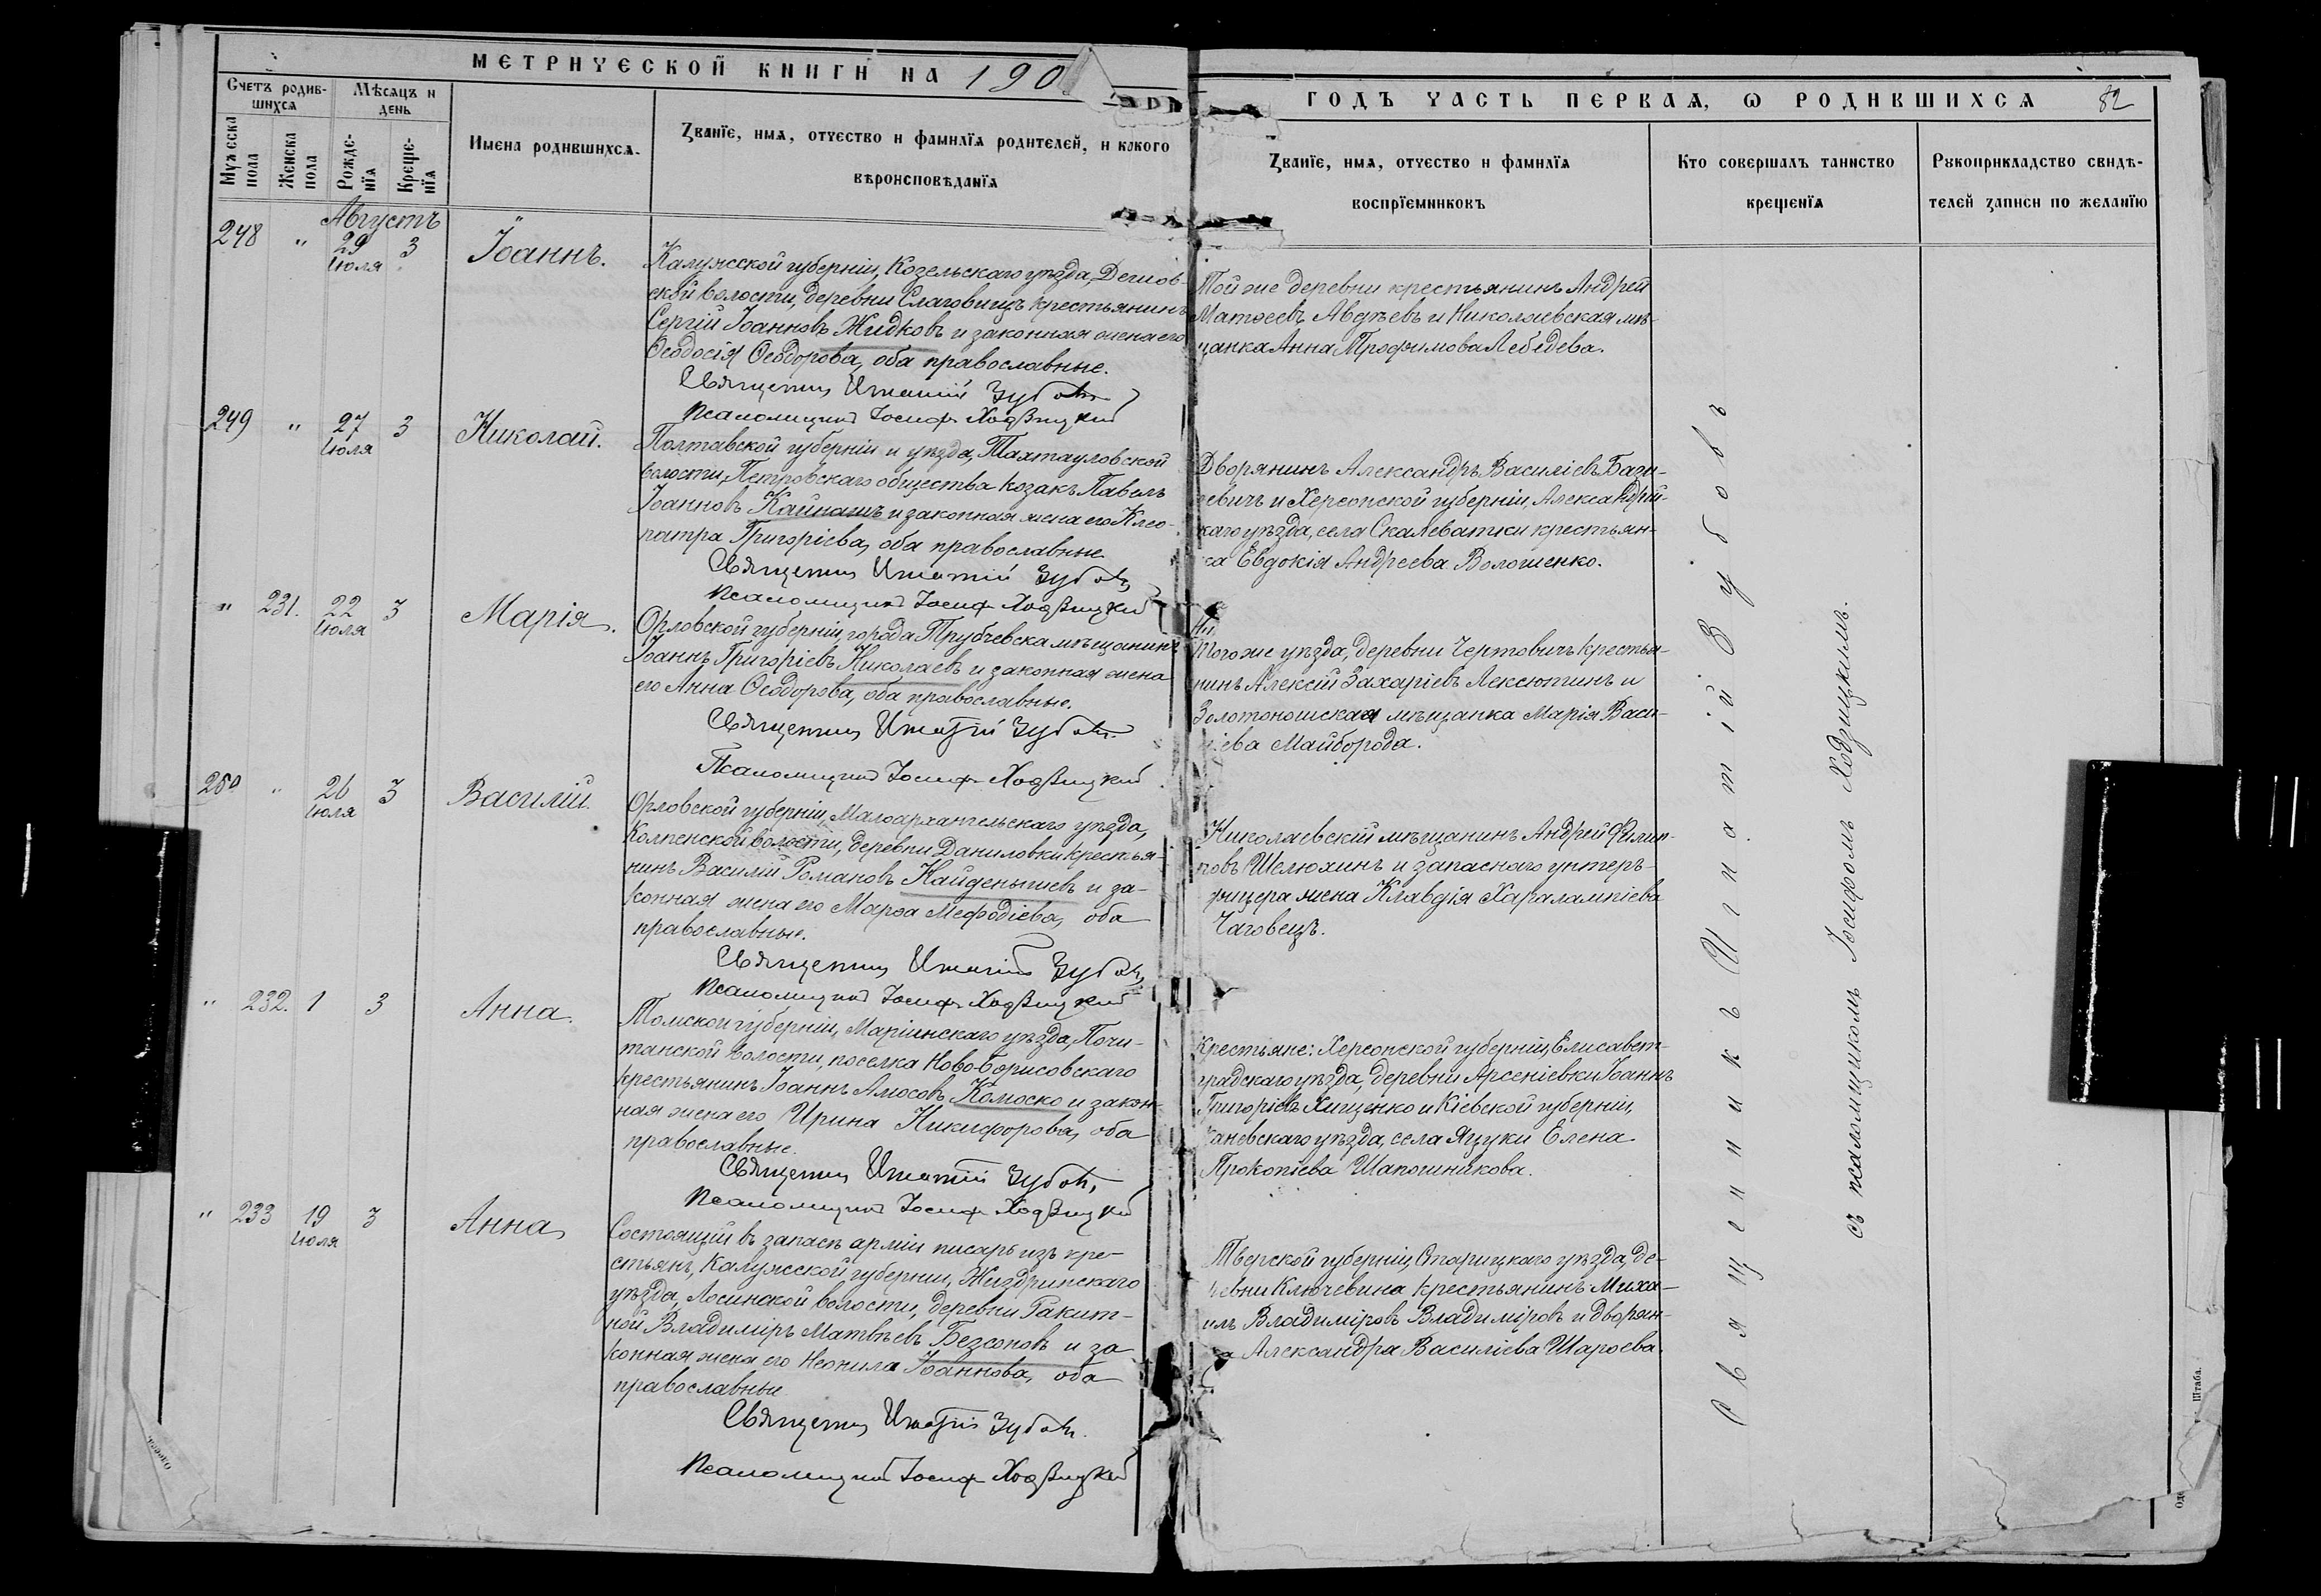 МЕТРИЧЕСКОЙ КНИГИ НА 190
Счетъ родив-
шихся
Мѣсяцъ и
день
Мужеска
пола
Женска
пола
Рожде-
нія
Креще-
нія
Имена родившихся.
Званіе, имя, отчество и фамилія родителей, и какого
вѣроисповѣданія
Августъ
248 " 29 3
Іюля
Іоаннъ.
Калужской губерніи, Козельскаго уѣзда,
ской волости, деревни крестьянинъ
Сергій Іоанновъ Жидковъ и законная жена его
Ѳеодосія Ѳеодорова, оба православные.
Священникъ Игнатій Зубовъ
Псаломщикъ Іосифъ Ходзицкій
249 " 27 3
Іюля
Николай.
Полтавской губерніи и уѣзда, Тахтауловской
волости, Петровскаго общества козакъ Павелъ
Іоанновъ Кайнашъ и законная жена его Клео-
патра Григоріева, оба православные
Священникъ Игнатій Зубовъ
Псаломщикъ Іосифъ Ходзицкій
" 231. 22 3
Іюля
Марія.
Орловской губерніи, города Трубчевска мѣщанинъ
Іоаннъ Григоріевъ Николаевъ и законная жена
его Анна Ѳеодорова, оба православные.
Священникъ Игнатій Зубовъ.
Псаломщикъ Іосифъ Ходзицкій
250 " 26 3
Іюля
Василій.
Орловской губерніи, Малоархангельскаго уѣзда,
Колпенской волости, деревни Даниловки крестья-
нинъ Василій Романовъ Найденышевъ и за-
конная жена его Марѳа Мефодіева, оба
православные.
Священникъ Игнатій Зубовъ,
Псаломщикъ Іосифъ Ходзицкій
" 232. 1 3
Анна.
Томской губерніи, Маріинскаго уѣзда, Почи-
танской волости, поселка Ново-Борисовскаго
крестьянинъ Іоаннъ Амосовъ Комоско и закон-
ная жена его Ирина Никифорова, оба
православные.
Священникъ Игнатій Зубовъ,
Псаломщикъ Іосифъ Ходзицкій
" 233 19 3
Іюля
Анна
Состоящій въ запасѣ арміи писарь изъ кре-
стьянъ, Калужской губерніи, Жиздринскаго
уѣзда, Лосинской волости, деревни Ракит-
ной Владиміръ Матвѣевъ Безсоновъ и за
конная жена его Неонила Іоаннова, оба
православные
Священникъ Игнатій Зубовъ.
Псаломщикъ Іосифъ Ходзицкій
ГОДЪ ЧАСТЬ ПЕРВАЯ, О РОДИВШИХСЯ 82
Званіе, имя, отчество и фамилія
воспріемниковъ
Кто совершалъ таинство
крещенія
Рукоприкладство свидѣ-
телей записи по желанію
Той же деревни крестьянинъ Андрей
Матѳеевъ Авдѣевъ и Николаевская мѣ-
щанка Анна Трофимова Лебедева.
Дворянинъ Александръ Василіевъ
и Херсонской губерніи, Александрій-
скаго уѣзда, села Скалеватки крестьян-
ка Евдокія Андреева Волошенко.
Того же уѣзда, деревни Чертовичъ крестья-
нинъ Алексій Захаріевъ Лексютинъ и
Золотоношская мѣщанка Марія Васи-
ліева Майборода.
Николаевскій мѣщанинъ Андрей Филип-
повъ Шелюхинъ и запаснаго унтеръ-
офицера жена Клавдія Харалампіева
Чаговецъ.
Крестьяне: Херсонской губерніи, Елисавет-
градскаго уѣзда, деревни Арсеніевки Іоаннъ
Григоріевъ Хищенко и Кіевской губерніи,
Каневскаго уѣзда, села Яцуки Елена
Прокопіева Шапошникова.
Тверской губерніи, Старицкаго уѣзда, де-
ревни Ключевина крестьянинъ Миха-
илъ Владиміровъ Владиміровъ и дворян-
ка Александра Василіева Шароева.
Священникъ Игнатій Зубовъ
съ псаломщикомъ Іосифомъ Ходзицкимъ.
Штаба.
Оде